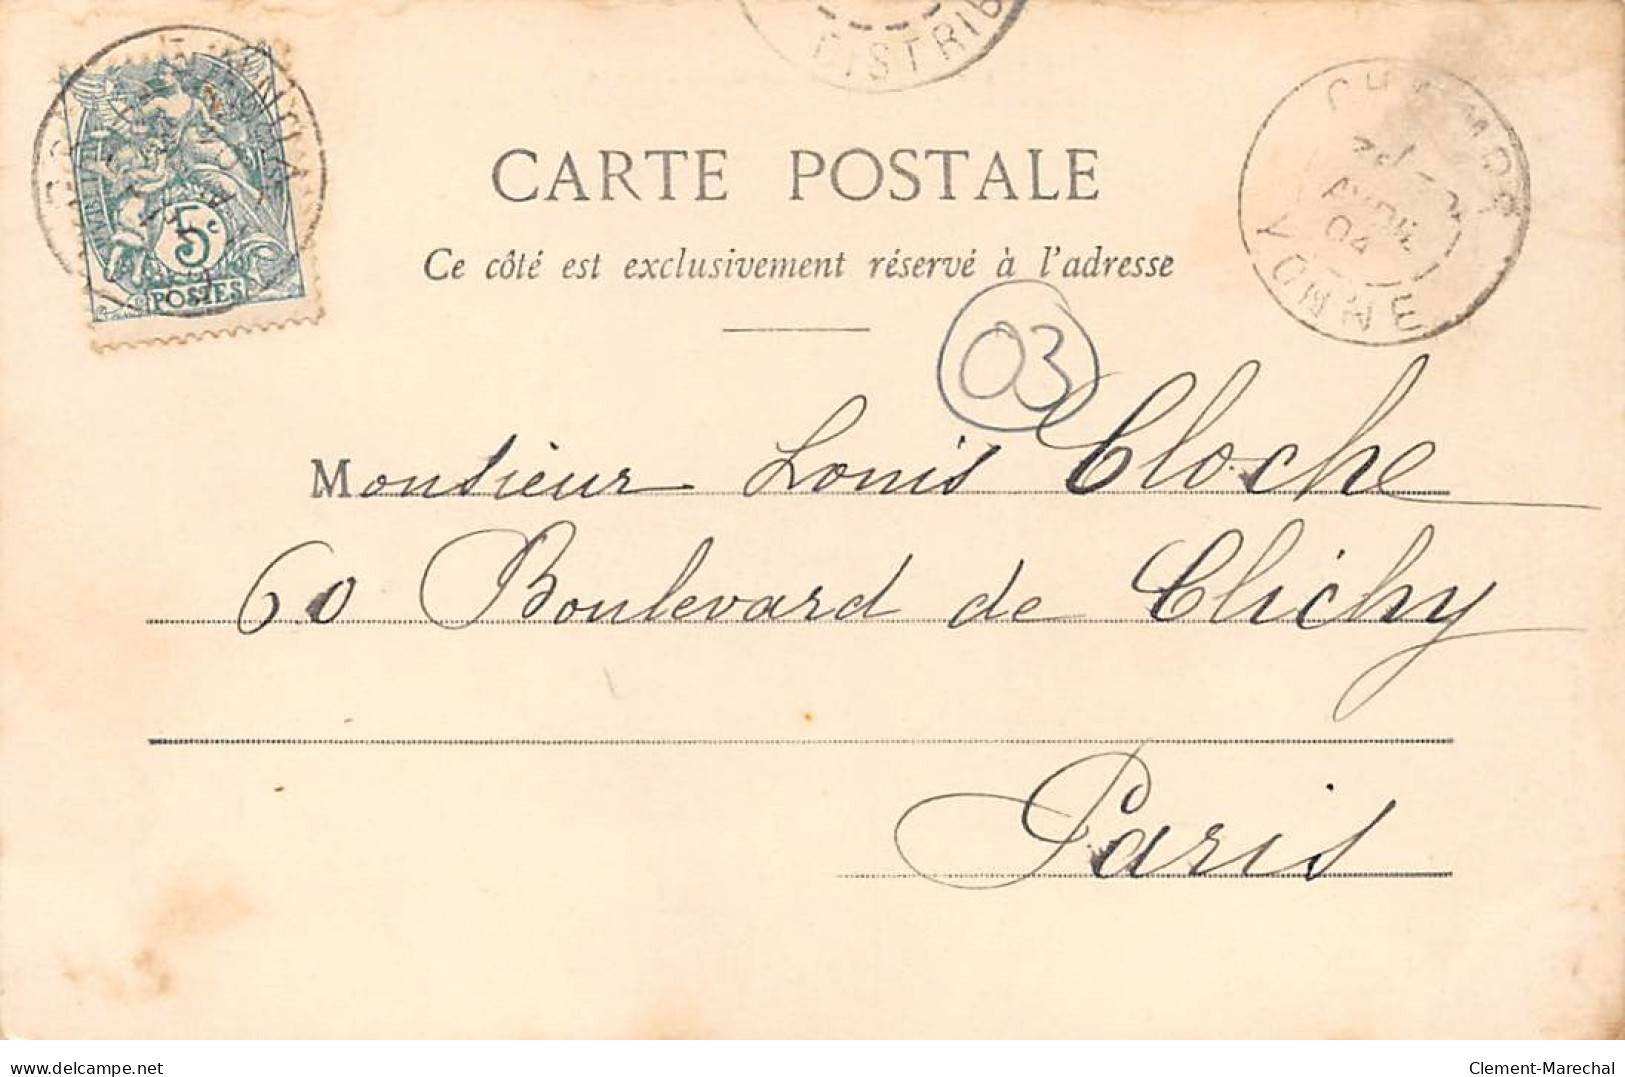 DISTRIB
5c
POSTES
YONNE
AVRIL
04
CARTE POSTALE
Ce côté est exclusivement réservé à l'adresse
03
Monsieur Louis Cloche
60 Boulevard de Clichy
Paris
delcampe.net
Clement-Marechal